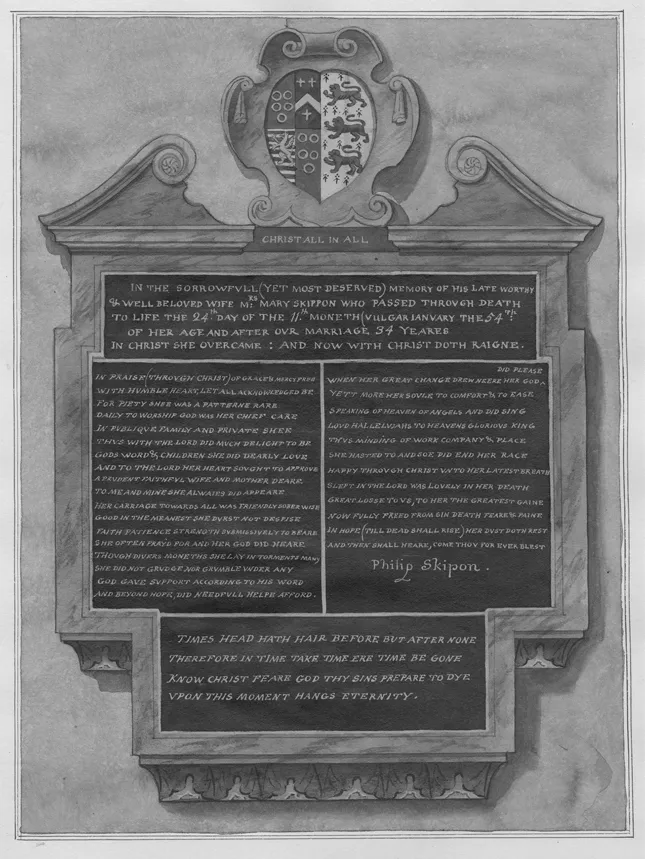 CHRIST ALL IN ALL
IN THE SORROWFVLL (YET MOST DESERVED) MEMORY OF HIS LATE WORTHY
& WELL BELOVED WIFE MRS: MARY SKIPPON WHO PASSED THROVGH DEATH
TO LIFE THE 24th DAY OF THE 11.th MONETH (VVLGAR IANVARY THE 54th:
OF HER AGE AND AFTER OVR MARRIAGE, 34 YEARES
IN CHRIST SHE OVERCAME : AND NOW WITH CHRIST DOTH RAIGNE.
IN PRAISE (THROVGH CHRIST) OF GRACE & MERCY FREE
WITH HVMBLE HEART, LET ALL ACKNOWLEDGED BE
FOR PIETY SHEE WAS A PATTERNE RARE
DAILY TO WORSHIP GOD WAS HER CHIEF CARE
IN PVBLIQVE FAMILY AND PRIVATE SHEE
THVS WITH THE LORD DID MVCH DELIGHT TO BE
GODS WORD & CHILDREN SHE DID DEARLY LOVE
AND TO THE LORD HER HEART SOVGHT TO APPROVE
A PRVDENT FAITHFVL WIFE AND MOTHER DEARE
TO ME AND MINE SHE ALWAIES DID APPEARE
HER CARRIAGE TOWARDS ALL WAS FRIENDLY SOBER WISE
GOOD IN THE MEANEST SHE DVRST NOT DESPISE
FAITH PATIENCE STRENGTH SVBMISSIVELY TO BEARE
SHE OFTEN PRAY'D FOR AND HER GOD DID HEARE
THOVGH DIVERS MONETHS SHE LAY IN TORMENTS MANY
SHE DID NOT GRVDGE NOR GRVMBLE VNDER ANY
GOD GAVE SVPPORT ACCORDING TO HIS WORD
AND BEYOND HOPE, DID NEEDFVLL HELPE AFFORD.
DID PLEASE
WHEN HER GREAT CHANGE DREW NEERE HER GOD^
YET MORE HER SOVLE TO COMFORT & TO EASE
SPEAKING OF HEAVEN OF ANGELS AND DID SING
LOVD HALLELVIAHS TO HEAVENS GLORIOVS KING
THVS MINDING OF WORK COMPANY & PLACE
SHE HASTED TO AND SOE DID END HER RACE
HAPPY THROVGH CHRIST VNTO HER LATEST BREATH
SLEPT IN THE LORD WAS LOVELY IN HER DEATH
GREAT LOSSE TO VS, TO HER THE GREATEST GAINE
NOW FVLLY FREED FROM SIN DEATH FEARE & PAINE
IN HOPE (TILL DEAD SHALL RISE) HER DVST DOTH REST
AND THEN SHALL HEARE, COME THOV FOR EVER BLEST
Philip Skipon.
TIMES HEAD HATH HAIR BEFORE BUT AFTER NONE
THEREFORE IN TIME TAKE TIME ERE TIME BE GONE
KNOW CHRIST FEARE GOD THY SINS PREPARE TO DYE
VPON THIS MOMENT HANGS ETERNITY.